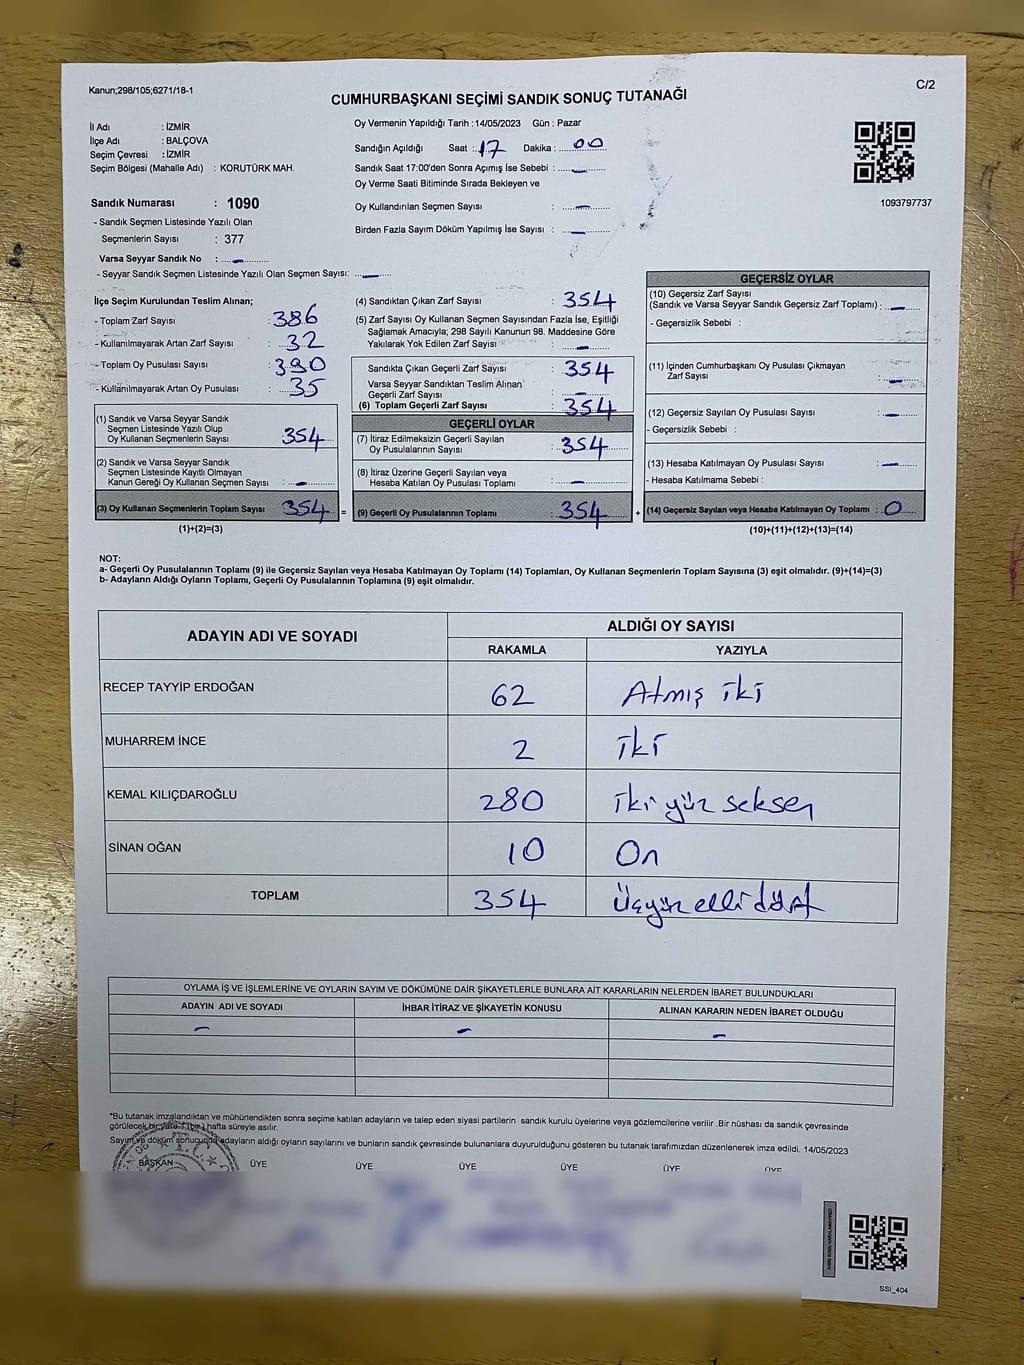 Kanun;298/105;6271/18-1
C/2
CUMHURBAŞKANI SEÇİMİ SANDIK SONUÇ TUTANAĞI
İl Adı : İZMİR
İlçe Adı : BALÇOVA
Seçim Çevresi : İZMİR
Seçim Bölgesi (Mahalle Adı) : KORUTÜRK MAH.
Sandık Numarası : 1090
- Sandık Seçmen Listesinde Yazılı Olan
Seçmenlerin Sayısı : 377
Varsa Seyyar Sandık No : -
- Seyyar Sandık Seçmen Listesinde Yazılı Olan Seçmen Sayısı: -
Oy Vermenin Yapıldığı Tarih :14/05/2023 Gün : Pazar
Sandığın Açıldığı Saat : 17 Dakika : 00
Sandık Saat 17:00'den Sonra Açımış İse Sebebi : -
Oy Verme Saati Bitiminde Sırada Bekleyen ve
Oy Kullandırılan Seçmen Sayısı : -
Birden Fazla Sayım Döküm Yapılmış İse Sayısı : -
1093797737
İlçe Seçim Kurulundan Teslim Alınan;
- Toplam Zarf Sayısı : 386
- Kullanılmayarak Artan Zarf Sayısı : 32
- Toplam Oy Pusulası Sayısı : 390
- Kullanılmayarak Artan Oy Pusulası : 35
(1) Sandık ve Varsa Seyyar Sandık
Seçmen Listesinde Yazılı Olup
Oy Kullanan Seçmenlerin Sayısı : 354
(2) Sandık ve Varsa Seyyar Sandık
Seçmen Listesinde Kayıtlı Olmayan
Kanun Gereği Oy Kullanan Seçmen Sayısı : -
(3) Oy Kullanan Seçmenlerin Toplam Sayısı : 354 =
(1)+(2)=(3)
(4) Sandıktan Çıkan Zarf Sayısı : 354
(5) Zarf Sayısı Oy Kullanan Seçmen Sayısından Fazla İse, Eşitliği
Sağlamak Amacıyla; 298 Sayılı Kanunun 98. Maddesine Göre
Yakılarak Yok Edilen Zarf Sayısı : -
Sandıkta Çıkan Geçerli Zarf Sayısı : 354
Varsa Seyyar Sandıktan Teslim Alınan
Geçerli Zarf Sayısı : -
(6) Toplam Geçerli Zarf Sayısı : 354
GEÇERLİ OYLAR
(7) İtiraz Edilmeksizin Geçerli Sayılan
Oy Pusulalarının Sayısı : 354
(8) İtiraz Üzerine Geçerli Sayılan veya
Hesaba Katılan Oy Pusulası Toplamı : -
(9) Geçerli Oy Pusulalarının Toplamı : 354 +
GEÇERSİZ OYLAR
(10) Geçersiz Zarf Sayısı
(Sandık ve Varsa Seyyar Sandık Geçersiz Zarf Toplamı) : -
- Geçersizlik Sebebi :
(11) İçinden Cumhurbaşkanı Oy Pusulası Çıkmayan
Zarf Sayısı : -
(12) Geçersiz Sayılan Oy Pusulası Sayısı : -
- Geçersizlik Sebebi :
(13) Hesaba Katılmayan Oy Pusulası Sayısı : -
- Hesaba Katılmama Sebebi :
(14) Geçersiz Sayılan veya Hesaba Katılmayan Oy Toplamı : 0
(10)+(11)+(12)+(13)=(14)
NOT:
a- Geçerli Oy Pusulalarının Toplamı (9) ile Geçersiz Sayılan veya Hesaba Katılmayan Oy Toplamı (14) Toplamları, Oy Kullanan Seçmenlerin Toplam Sayısına (3) eşit olmalıdır. (9)+(14)=(3)
b- Adayların Aldığı Oyların Toplamı, Geçerli Oy Pusulalarının Toplamına (9) eşit olmalıdır.
ADAYIN ADI VE SOYADI
ALDIĞI OY SAYISI
RAKAMLA YAZIYLA
RECEP TAYYİP ERDOĞAN 62 Atmış iki
MUHARREM İNCE 2 iki
KEMAL KILIÇDAROĞLU 280 iki yüz seksen
SİNAN OĞAN 10 On
TOPLAM 354 Üçyüz elli dört
OYLAMA İŞ VE İŞLEMLERİNE VE OYLARIN SAYIM VE DÖKÜMÜNE DAİR ŞİKAYETLERLE BUNLARA AİT KARARLARIN NELERDEN İBARET BULUNDUKLARI
ADAYIN ADI VE SOYADI İHBAR İTİRAZ VE ŞİKAYETİN KONUSU ALINAN KARARIN NEDEN İBARET OLDUĞU
- - -
*Bu tutanak imzalandıktan ve mühürlendikten sonra seçime katılan adayların ve talep eden siyasi partilerin sandık kurulu üyelerine veya gözlemcilerine verilir .Bir nüshası da sandık çevresinde
görülecek bir yere 1 (bir) hafta süreyle asılır.
Sayım ve döküm sonucunda adayların aldığı oyların sayılarını ve bunların sandık çevresinde bulunanlara duyurulduğunu gösteren bu tutanak tarafımızdan düzenlenerek imza edildi. 14/05/2023
BAŞKAN ÜYE ÜYE ÜYE ÜYE ÜYE ÜYE
SSI_404